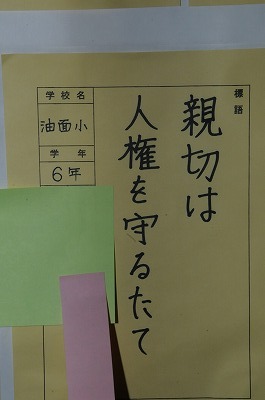 標語
親切は
人権を守るたて
学校名
油面小
学年
6年